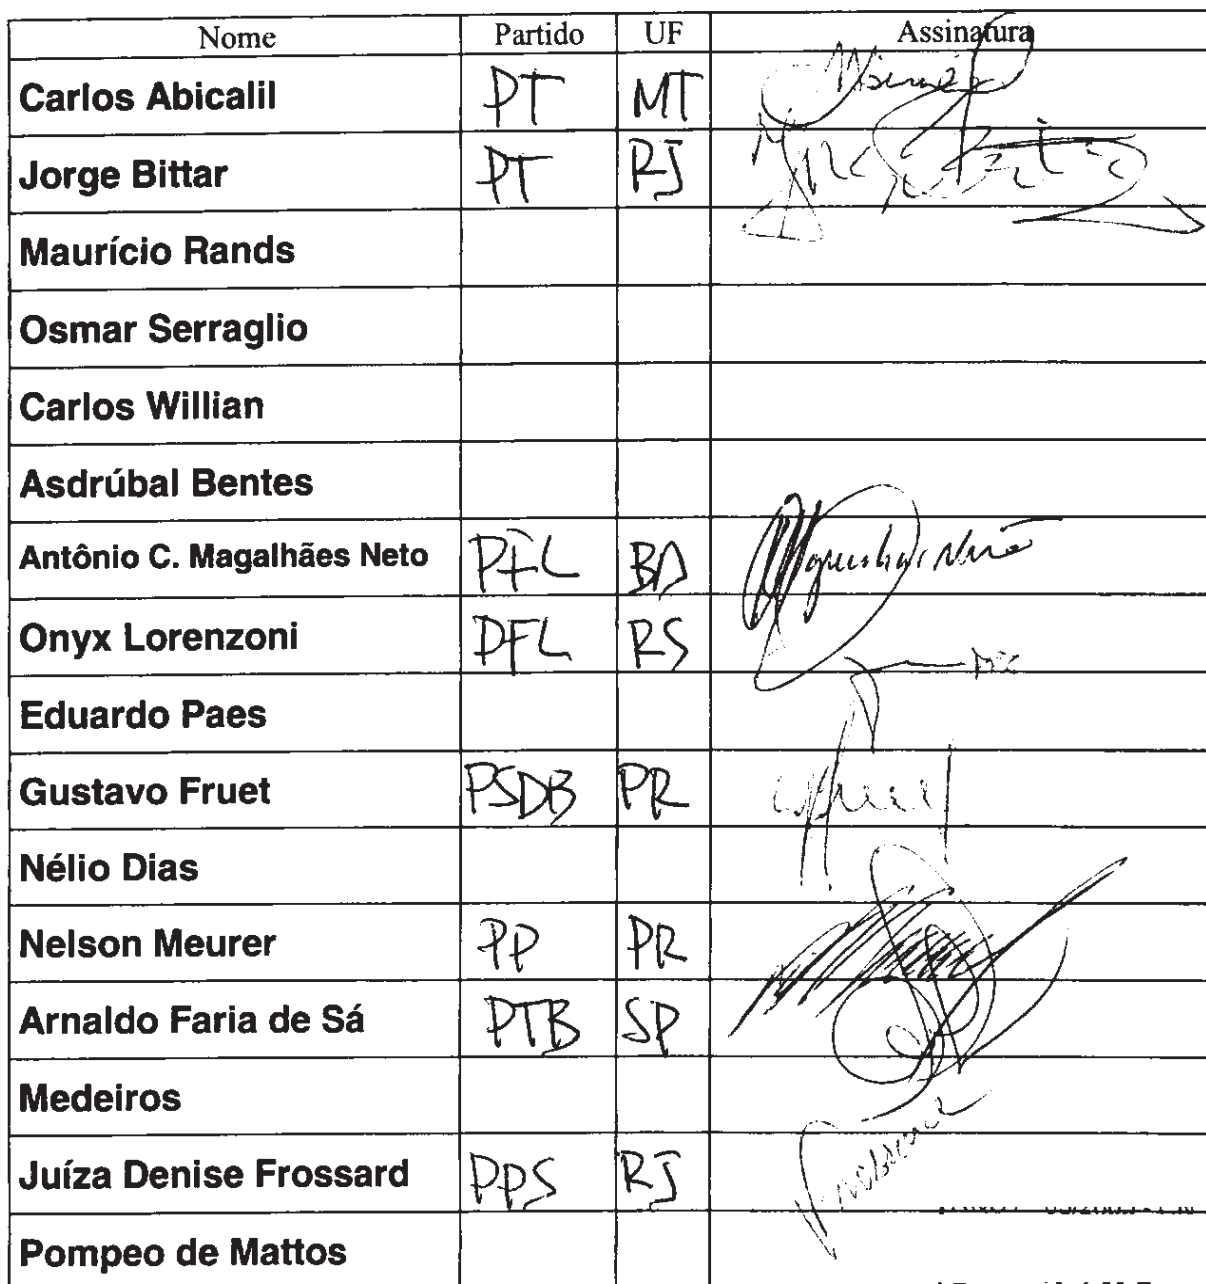 Nome Partido UF Assinatura
Carlos Abicalil PT MT
Jorge Bittar PT RJ
Maurício Rands
Osmar Serraglio
Carlos Willian
Asdrúbal Bentes
Antônio C. Magalhães Neto PFL BA
Onyx Lorenzoni PFL RS
Eduardo Paes
Gustavo Fruet PSDB PR
Nélio Dias
Nelson Meurer PP PR
Arnaldo Faria de Sá PTB SP
Medeiros
Juíza Denise Frossard PPS RJ
Pompeo de Mattos